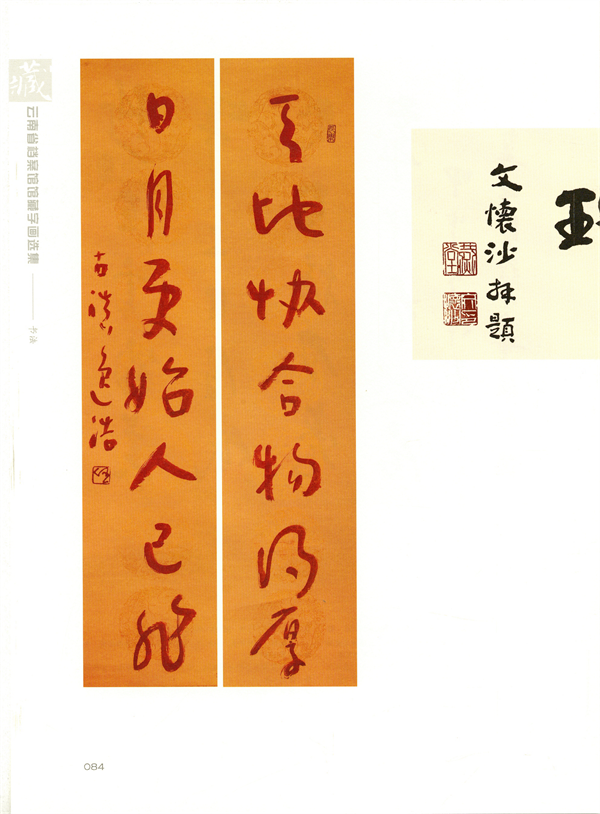 藏
云南省档案馆馆藏字画选集
书法
天地恊合物得厚
日月更始人已
古滇
文懷沙拜題
084